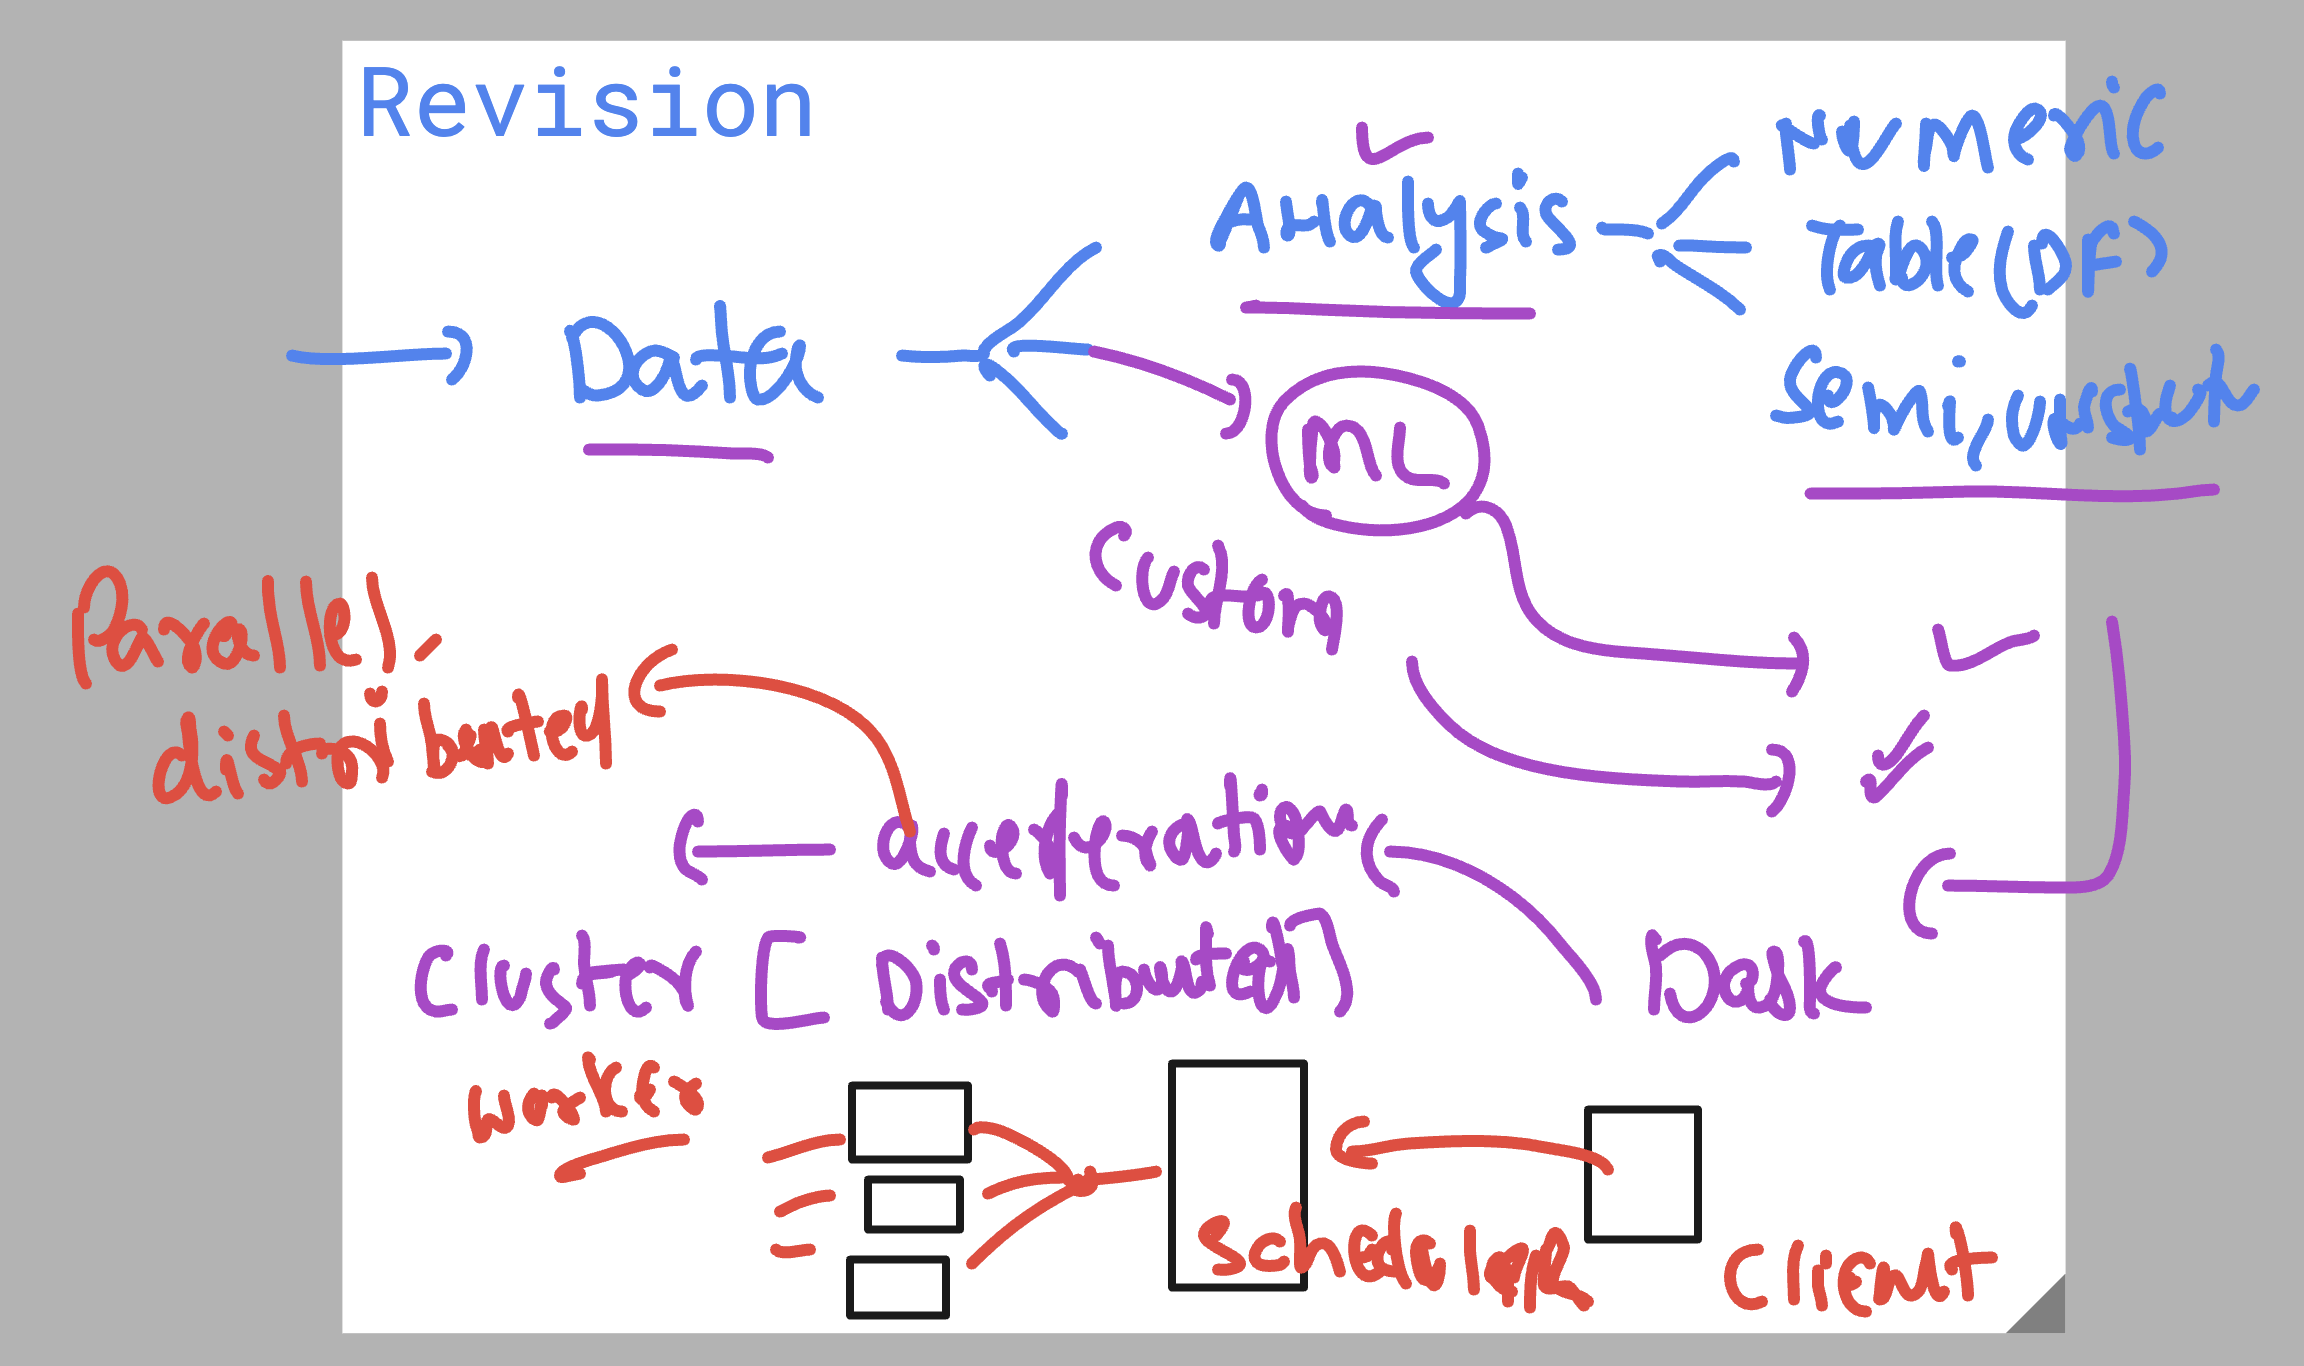 Revision
Analysis
Numeric
Table(DF)
Semi,
Data
ML
Custom
Parallel,
distributed
acceleration
Cluster [ Distributed ]
Dask
worker
Scheduler
Client